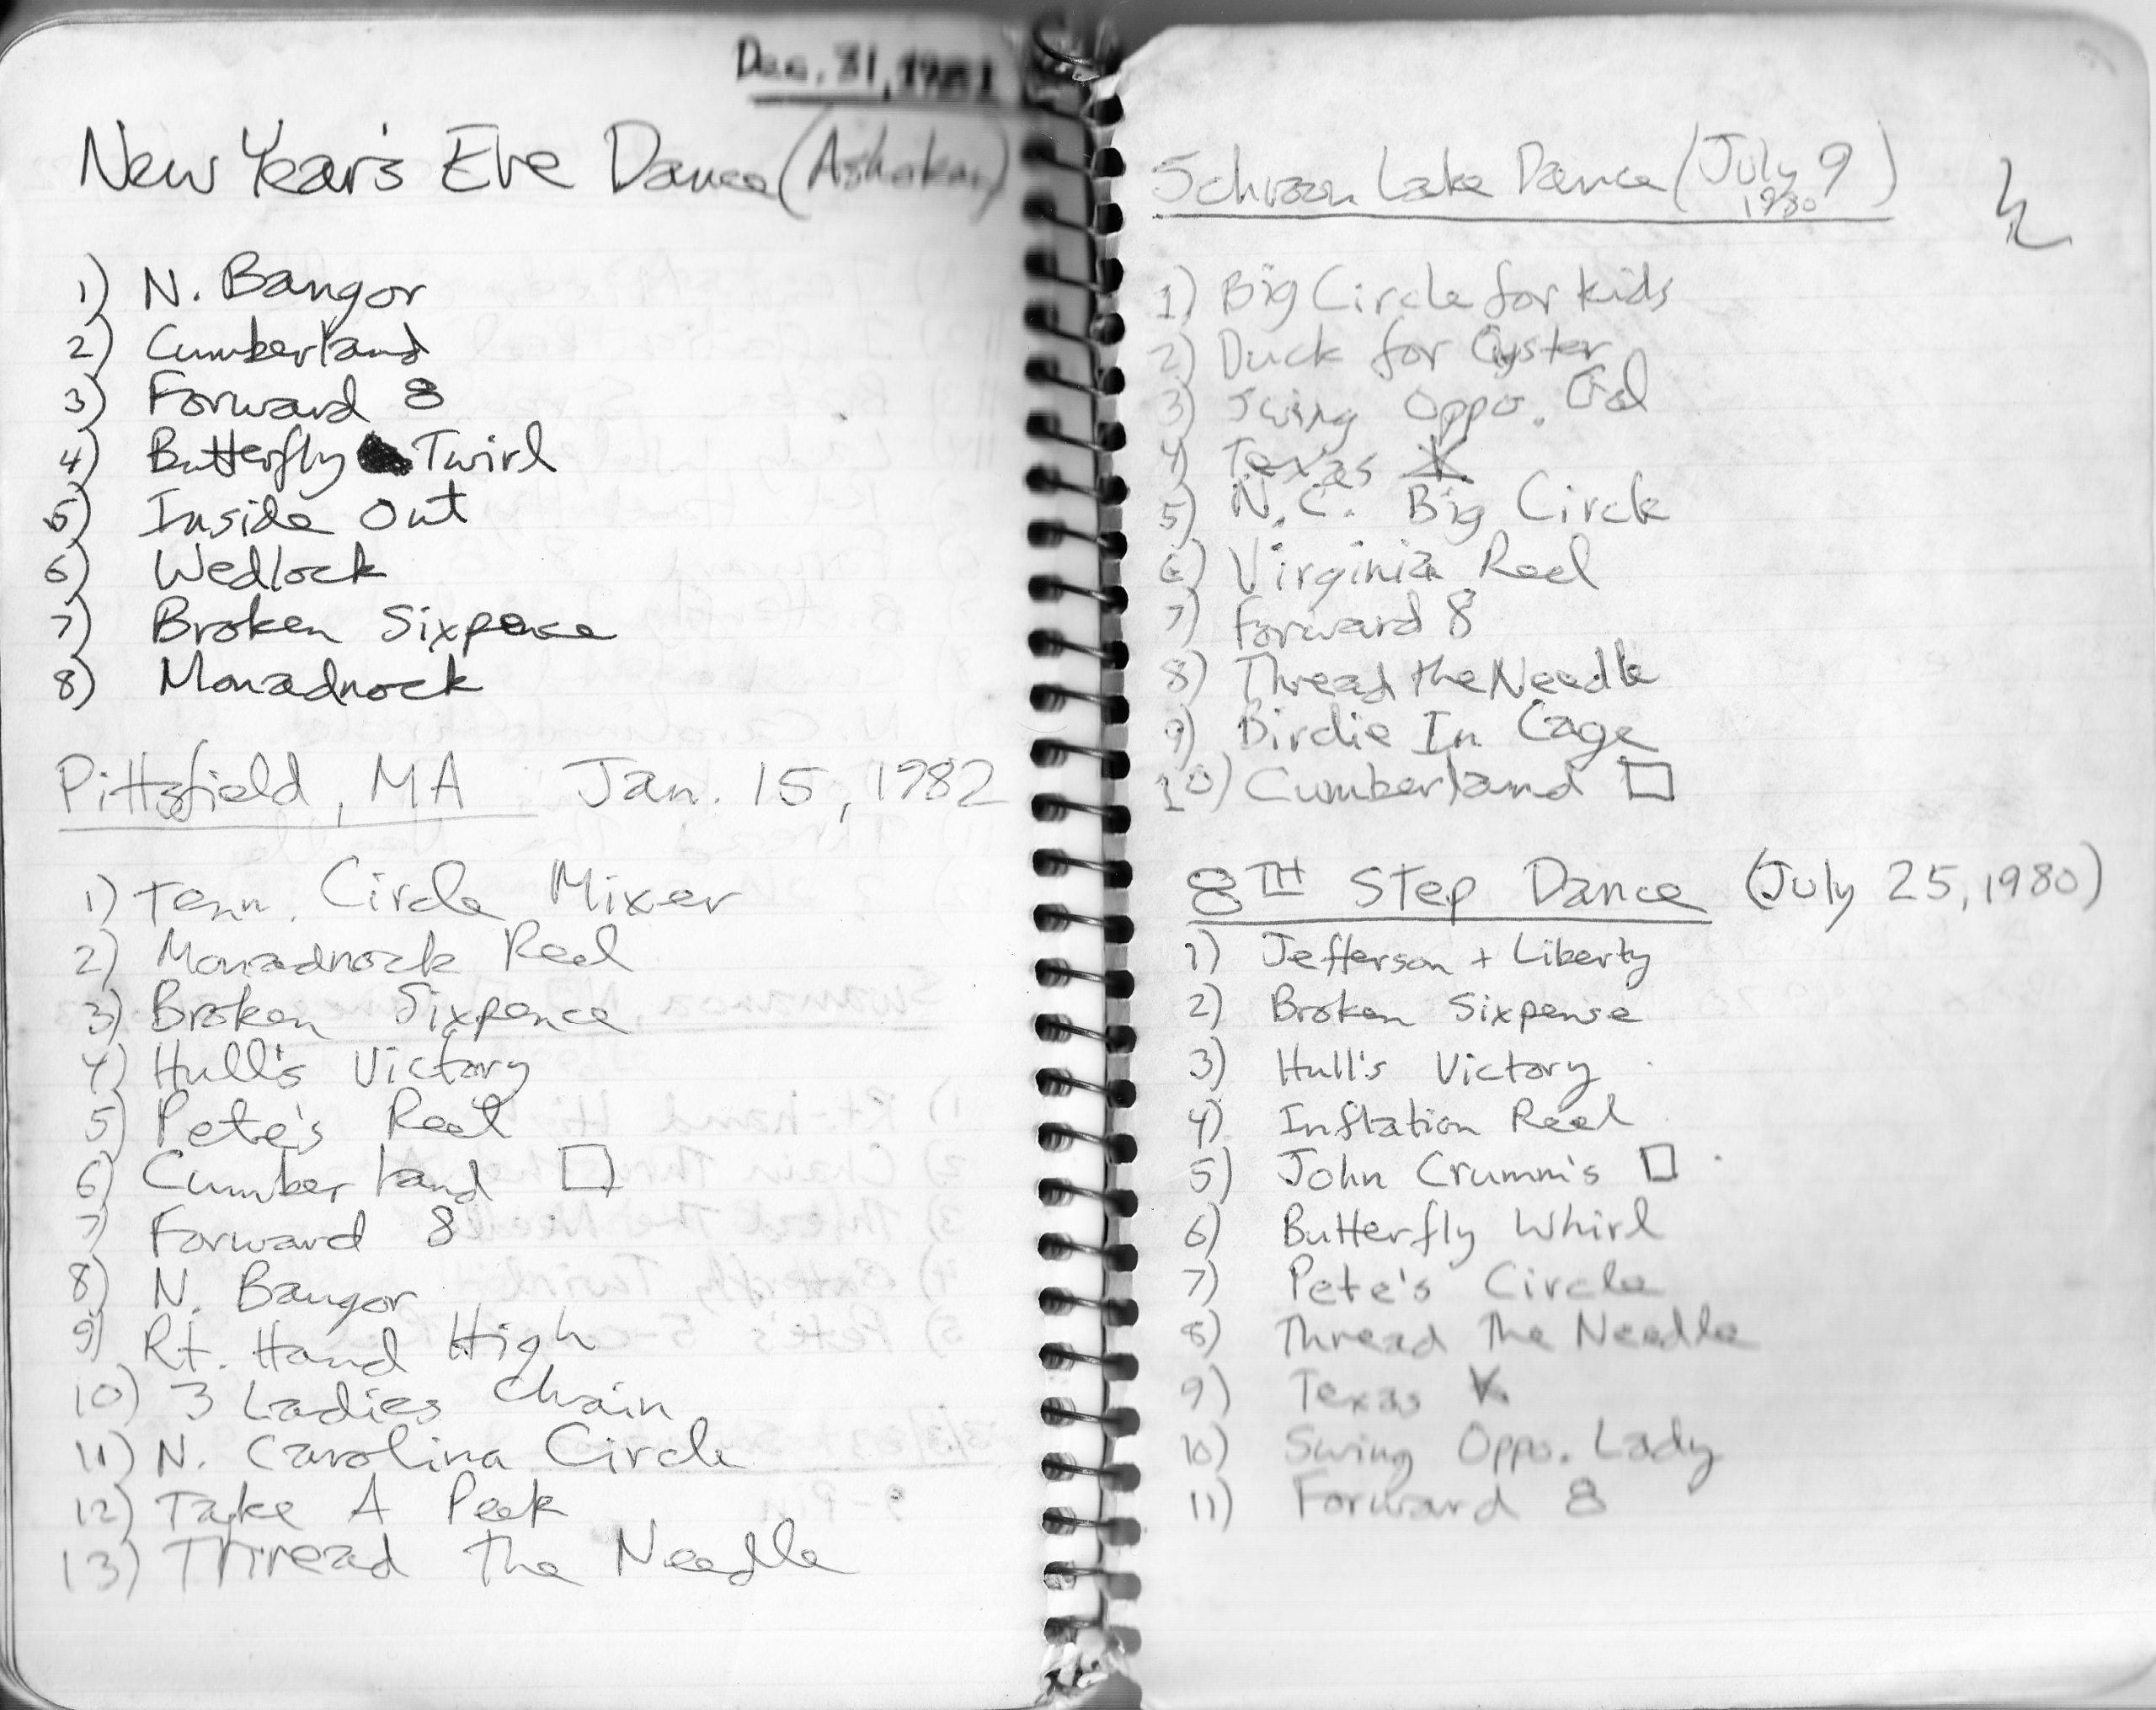 Dec. 31, 1981
New Year's Eve Dance (Ashokan)
1) N. Bangor
2) Cumberland
3) Forward 8
4) Butterfly Twirl
5) Inside Out
6) Wedlock
7) Broken Sixpence
8) Monadnock
Pittsfield, MA Jan. 15, 1982
1) Tenn. Circle Mixer
2) Monadnock Reel
3) Broken Sixpence
4) Hull's Victory
5) Pete's Reel
6) Cumberland □
7) Forward 8
8) N. Bangor
9) Rt. Hand High
10) 3 Ladies Chain
11) N. Carolina Circle
12) Take A Peek
13) Thread The Needle
Schroon Lake Dance (July 9)
1980
1) Big Circle for kids
2) Duck for Oyster
3) Swing Oppo. Gal
4) Texas ☆
5) N.C. Big Circle
6) Virginia Reel
7) Forward 8
8) Thread the Needle
9) Birdie In Cage
10) Cumberland □
8TH Step Dance (July 25, 1980)
1) Jefferson + Liberty
2) Broken Sixpense
3) Hull's Victory
4) Inflation Reel
5) John Crumm's □
6) Butterfly Whirl
7) Pete's Circle
8) Thread The Needle
9) Texas ☆
10) Swing Oppo. Lady
11) Forward 8